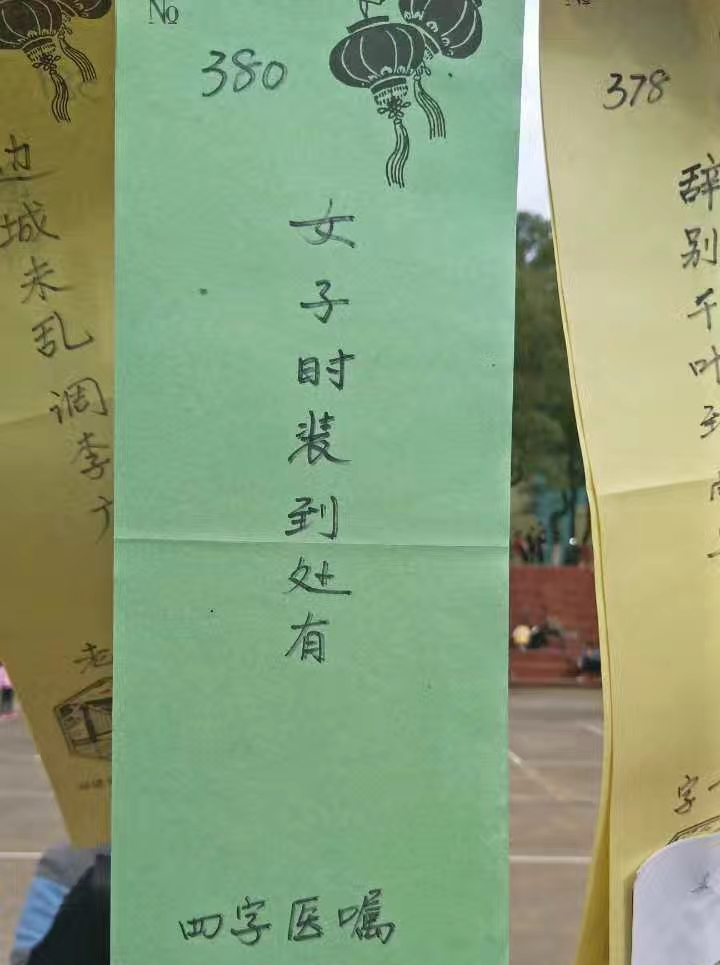 边城未乱调李广
老
№
380
女子时装到处有
四字医嘱
378
辞别千叶到
字一